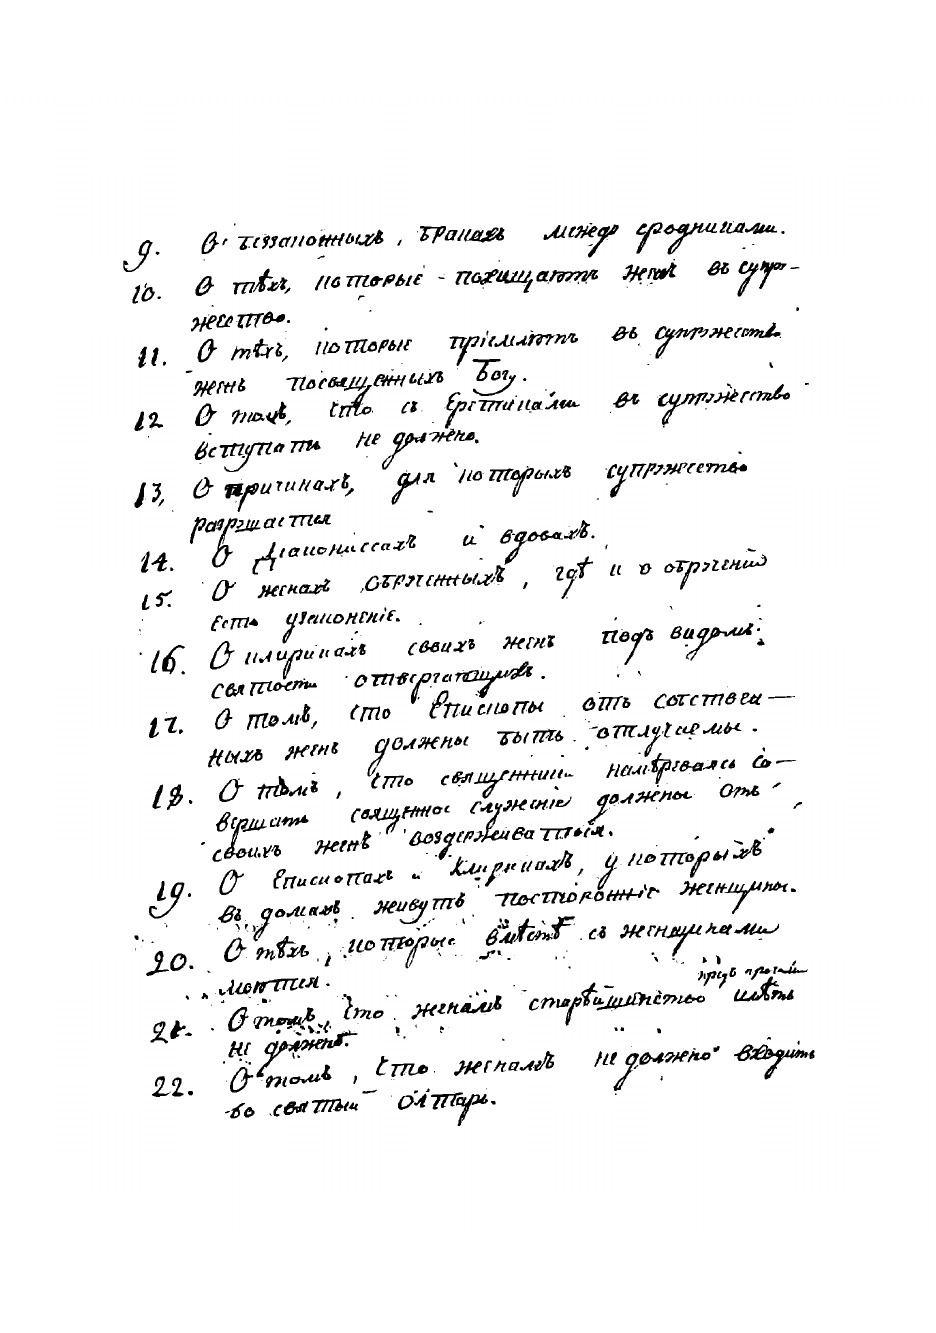 9. О беззаконныхъ, бракахъ между сродниками.
10. О тѣхъ, которые похищаютъ женъ въ супру-
жество.
11. О тѣхъ, которые прiемлютъ въ супружество
женъ посвященныхъ Богу.
12 О томъ, что съ Еретиками въ супружество
вступати не должно.
13, О причинахъ, для которыхъ супружество
разрѣшается
14. О Дiакониссахъ и вдовахъ.
15. О женахъ обрученныхъ, гдѣ и о обрученiи
есть узаконенiе.
16. О клирикахъ своихъ женъ подъ видомъ
святости отвергающихъ.
17. О томъ, что Епископы отъ собствен—
ныхъ женъ должны быть отлучаемы.
18. О томъ, что священники намѣреваясь со—
вершать священное служенiе должены отъ
своихъ женъ воздерживатися.
19. О Епископахъ и Клирикахъ, у которыхъ
въ домахъ живутъ постороннiе женщины.
20. О тѣхъ, которые вмѣстѣ съ женщинами
моются.
21. О томъ, что женамъ старѣйшинство предъ прочими имѣть
не должно.
22. О томъ, что женамъ не должно входить
во святый Олтарь.